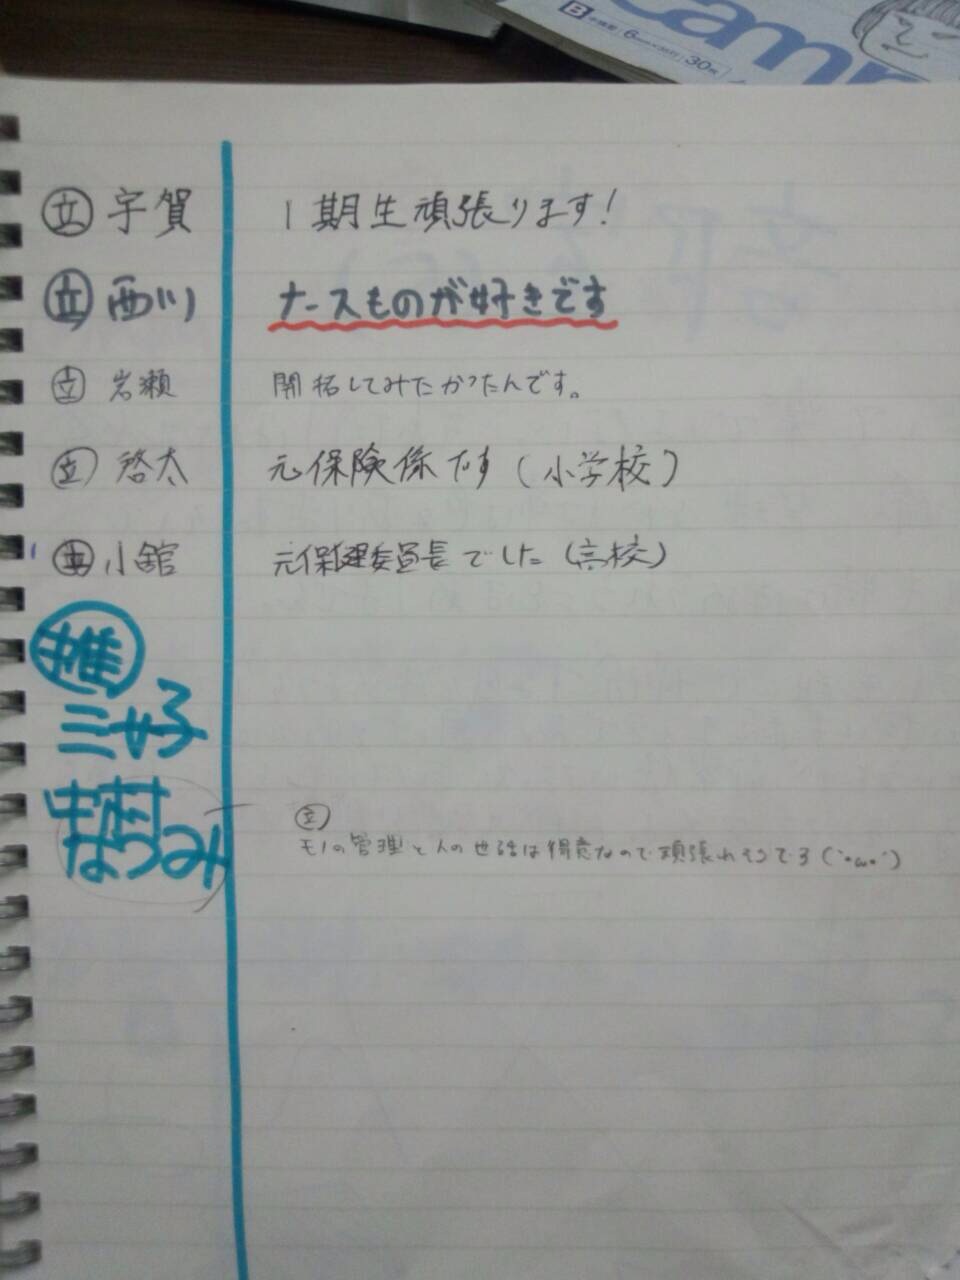 B 中横罫 6mm×35行 30枚
Camp
立 宇賀 1期生頑張ります!
立 西川 ナースものが好きです
立 岩瀬 開拓してみたかったんです。
立 啓太 元保険係です(小学校)
小舘 元保健委員長でした(高校)
推
三好
なつみ
立
モノの管理と人の世話は得意なので頑張れそうです(`・ω・´)